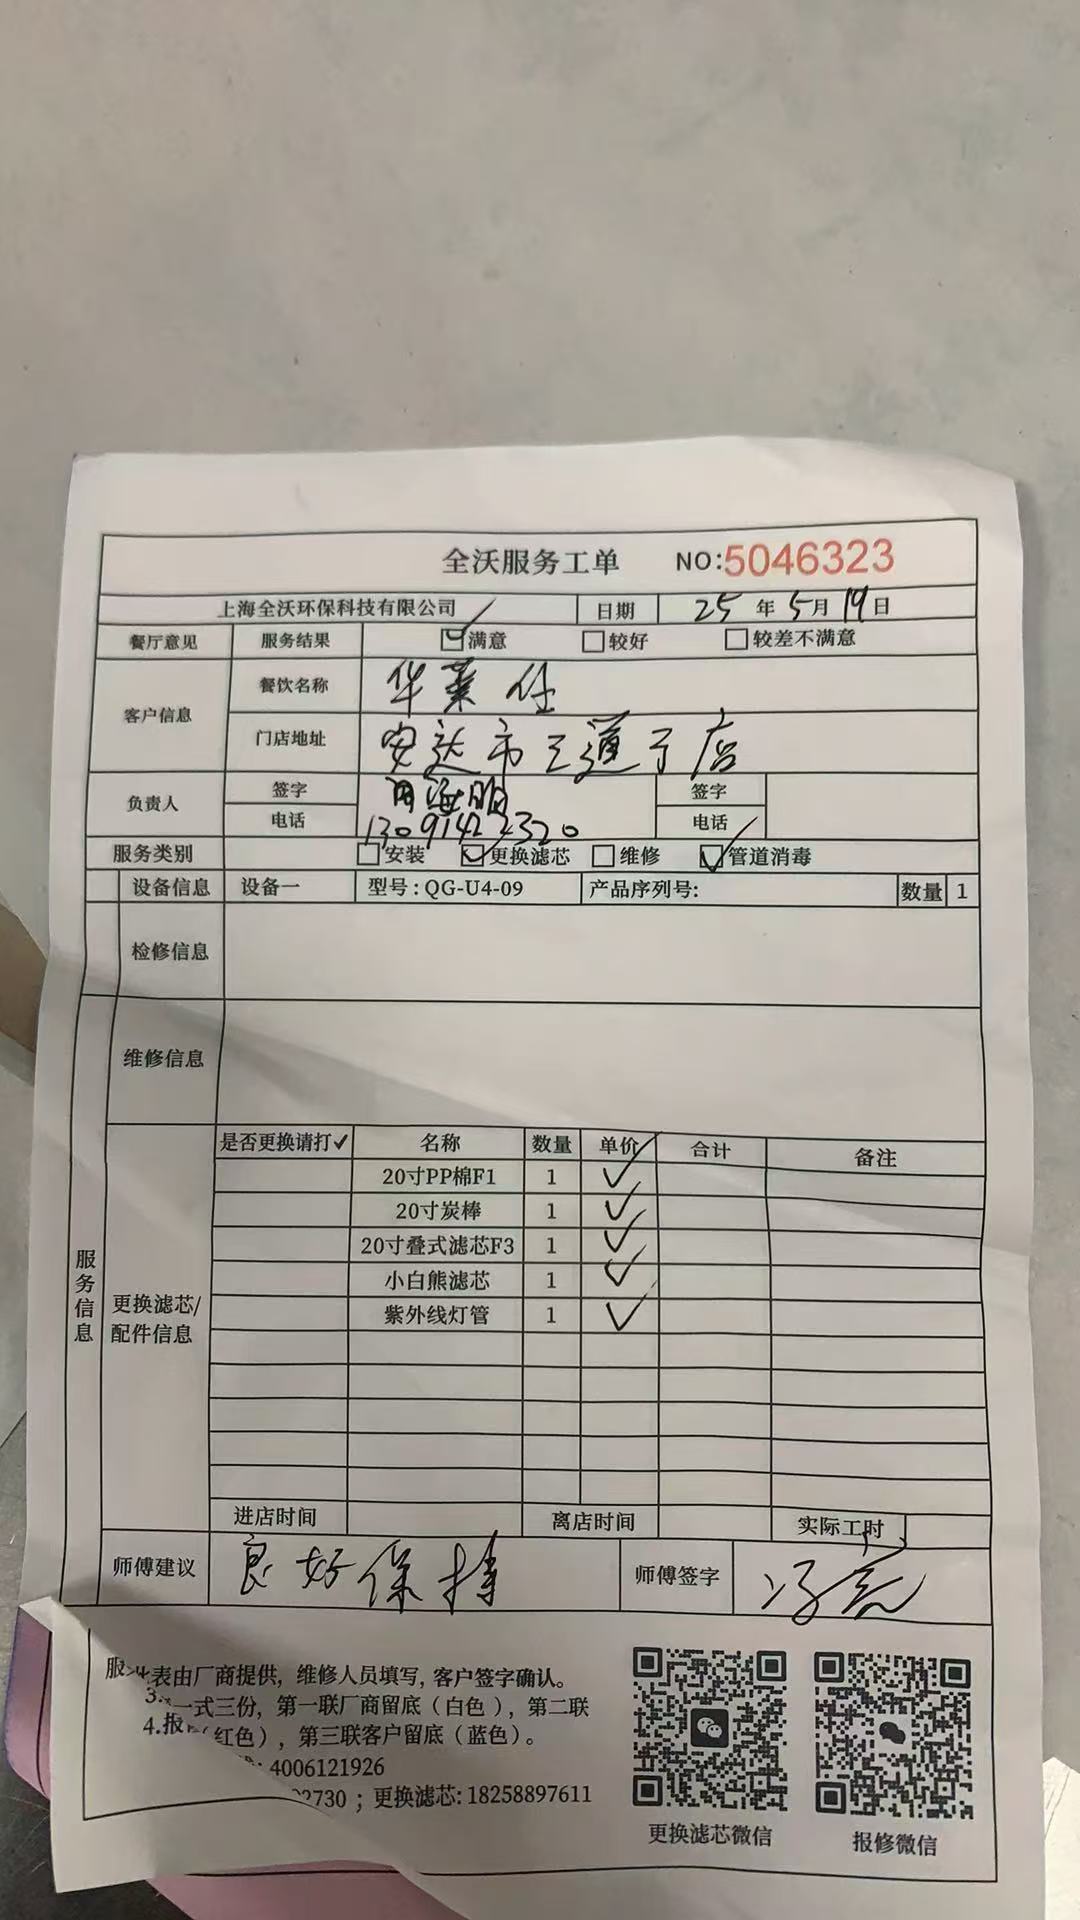 全沃服务工单 NO:5046323
上海全沃环保科技有限公司 日期 25年5月19日
餐厅意见 服务结果 ☑满意 □较好 □较差不满意
客户信息 餐饮名称 华莱仕
门店地址 安达市三道子店
负责人 签字 签字
电话 13091422320 电话
服务类别 □安装 ☑更换滤芯 □维修 ☑管道消毒
设备信息 设备一 型号:QG-U4-09 产品序列号: 数量 1
检修信息
维修信息
服务信息
更换滤芯/配件信息
是否更换请打✓ 名称 数量 单价 合计 备注
20寸PP棉F1 1 ✓
20寸炭棒 1 ✓
20寸叠式滤芯F3 1 ✓
小白熊滤芯 1 ✓
紫外线灯管 1 ✓
进店时间 离店时间 实际工时
师傅建议 良好保持 师傅签字
表由厂商提供,维修人员填写,客户签字确认。
3. 一式三份,第一联厂商留底(白色),第二联
4.报 (红色),第三联客户留底(蓝色)。
4006121926
2730;更换滤芯:18258897611
更换滤芯微信 报修微信